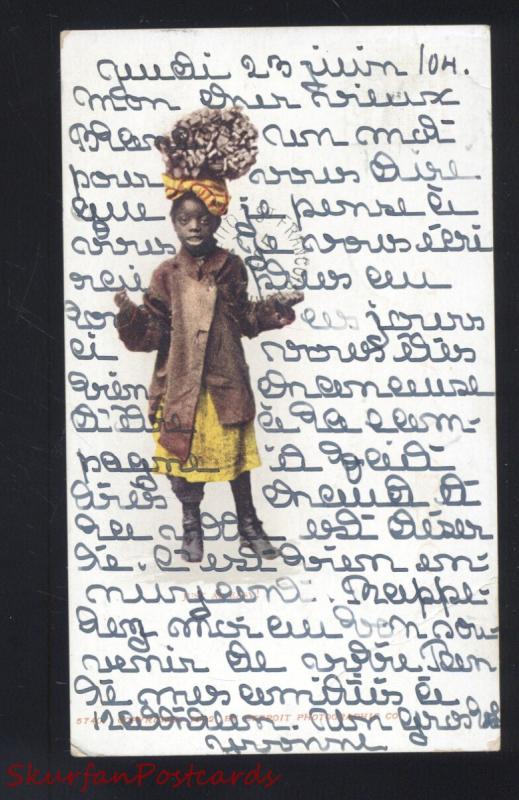 Jeudi 23 juin /04.
Mon cher vieux
Blanc un mot
pour vous dire
que je pense à
vous Je vous écri
rai plus au
long ces jours
ci vous êtes
bien chanceuse
d'être à la cam-
pagne il fait
très chaud et
la ville est déser
te. c'est bien en-
nuyant. Rappe-
lez moi au bon sou-
venir de votre tan
te mes amitiés à
Un gros bec
Yvonne
COPYRIGHT, 1902, BY DETROIT PHOTOGRAPHIC CO.
SkurfanPostcards